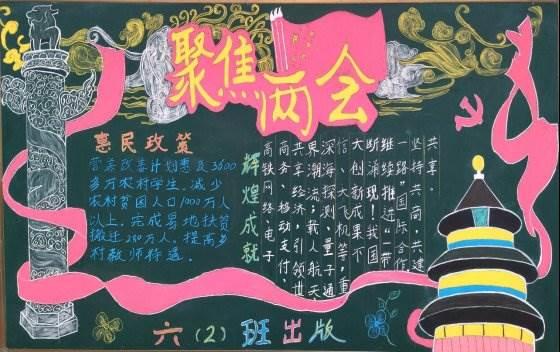 聚焦两会
惠民政策
营养改善计划惠及3600
多万农村学生,减少
农村贫困人口1000万人
以上,完成易地扶贫
搬迁280万人,提高乡
村教师待遇。
辉煌成就
高铁网络电子
商务、移动支付,
共享经济,引领世
界潮流;载人航天
深海探测、量子通
信、大飞机等,重
大创新成果不
断涌现!我国
继续推进“一带
一路”国际合作
坚持共商,共建
共享。
六(2)班出版